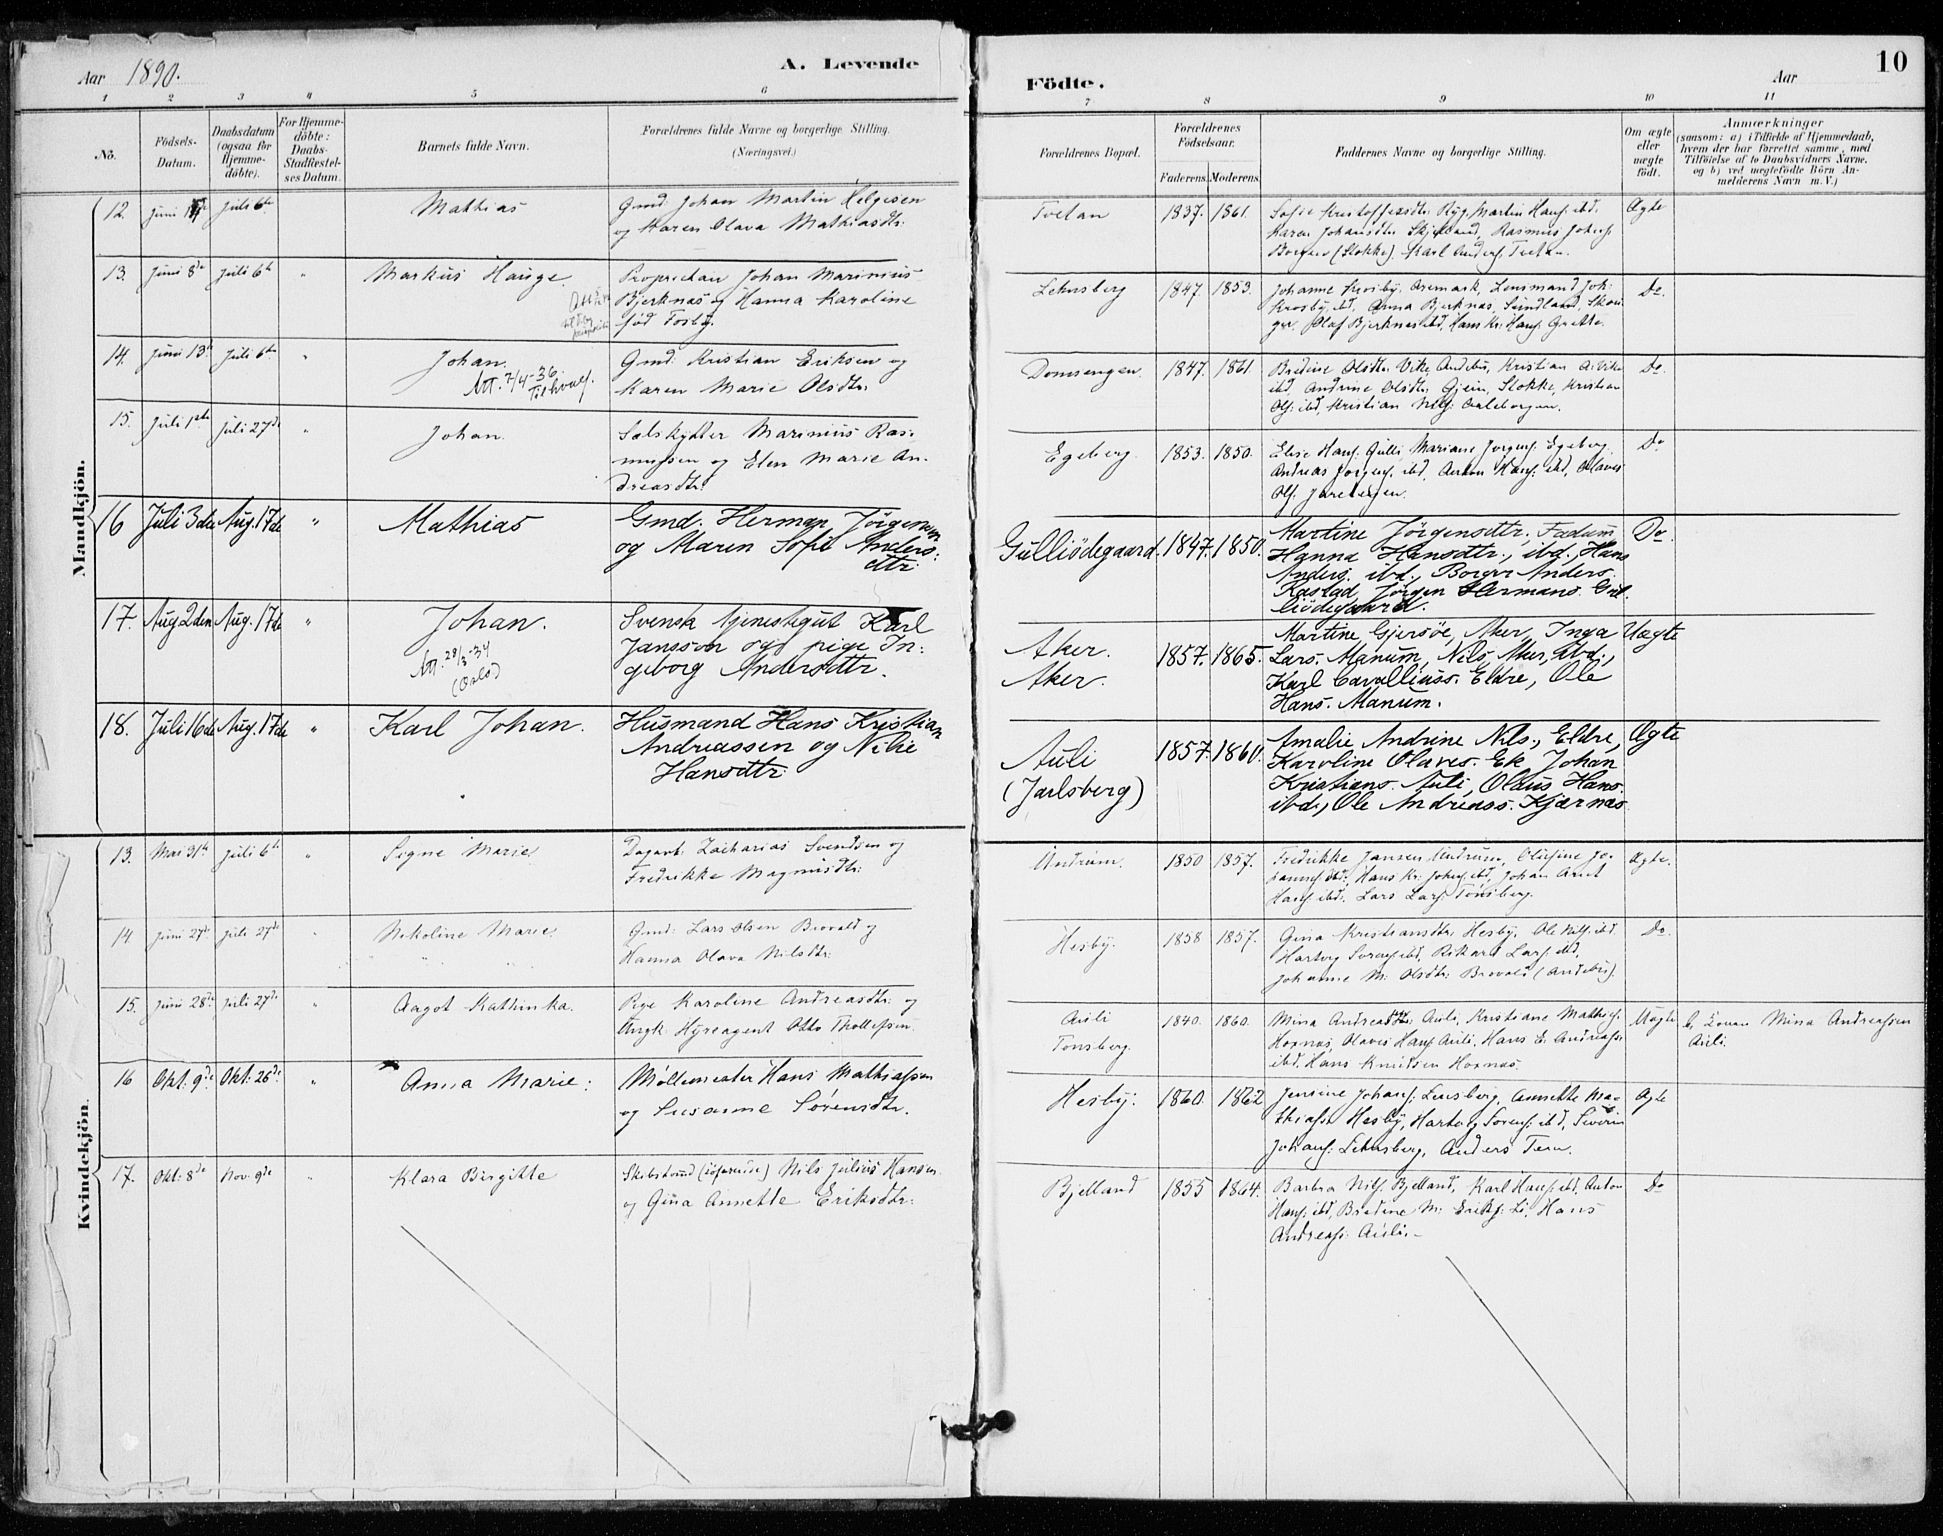 Aar 1890.
A. Levende
Födte.
Aar
10
1 2 3 4 5 6 7 8 9 10 11
No.
Födsels-
Datum.
Daabsdatum
(ogsaa for
Hjemme-
döbte).
For Hjemme-
döbte:
Daabs-
Stadfæstel-
ses Datum.
Barnets fulde Navn.
Forældrenes fulde Navne og borgerlige Stilling.
(Næringsvei.)
Forældrenes Bopæl.
Forældrenes
Födselsaar.
Faderens. Moderens.
Faddernes Navne og borgerlige Stilling.
Om ægte
eller
uægte
födt.
Anmærkninger
(saasom: a) i Tilfælde af Hjemmedaab,
hvem der har forrettet samme, med
Tilföielse af to Daabsvidners Navne.
og b) ved uægtefödte Börn An-
melderens Navn m. V.)
Mandkjön.
12. Juni Juli 6te Mathias
Gmd. Johan Martin Helgesen
og Karen Olava Mathiasdtr.
Tvetan 1837. 1861.
Sofie Kristoffersdtr. Ryg, Martin Hans. ibd.
Karen Johansdtr. Skjelland, Rasmus Johs.
Borgen (Slokke), Karl Anders. Tvetan.
Ægte
13. Juni 8de Juli 6te " Markus Hauge.
Proprietær Johan Marinius
Bjerknæs og Hanna Karoline
fød Fosby.
Lensberg 1847. 1853.
Johanne Krosby, Aremark, Lensmand Joh.
Krosby, ibd, Anna Bjerknæs, Sundland, Skou-
ger, Olaf Bjerknæs ibd, Hans Kr. Hans. Grette.
Do.
14. Juni 13de Juli 6te " Johan.
Att. 7/4-36.
Gmd. Kristian Eriksen og
Karen Marie Olsdtr.
Domsengen. 1847. 1861.
Bredine Olsdtr. Vike, Andebu, Kristian A. Vike
ibd, Andrine Olsdtr. Gjein, Slokke, Kristian
Ols. ibd, Kristian Nils.
Do.
15. Juli 1ste Juli 27de " Johan.
Sælskytter Marinius Ras-
mussen og Elen Marie An-
dreasdtr.
Egeberg. 1853. 1850.
Elise Hans. Gulli, Mariane Jørgens. Egeberg,
Andreas Jørgens. ibd, Anton Hans. ibd, Olaves
Ols. Jareteigen.
Do
16 Juli 3die Aug. 17de " Mathias
Gmd. Herman Jørgensen
og Maren Sofie Anders-
dtr.
Gulliödegaard. 1847. 1850.
Martine Jørgensdtr. Fadum,
Hanna Hansdtr., ibd., Hans
Anders. ibd., Borger Anders.
Rastad, Jörgen Hermans. Gul-
liödegaard.
Do.
17. Aug 2den Aug. 17de " Johan.
Att. 28/3-34
(Oslo)
Svensk Tjenestegut Karl
Jansson og pige In-
geborg Andersdtr.
Aker.
Aker.
1857. 1865.
Martine Gjersøe, Aker, Inga
Lars. Manum, Nils Aker, ibd.,
Karl Cavallius. Eldre, Ole
Hans. Manum.
Uægte
18. Juli 16de Aug. 17de " Karl Johan.
Husmand Hans Kristian
Andreassen og Nilie
Hansdtr.
Auli
(Jarlsberg)
1857. 1860.
Amalie Andrine Nils., Eldre,
Karoline Olaves. Ek, Johan
Kristians. Auli, Olaus Hans.
ibd., Ole Andreass. Kjærnæs
Ægte
Kvindekjön.
13. Mai 31te Juli 6te " Signe Marie
Dagarb. Zacharias Svendsen og
Fredrikke Magnusdtr.
Undrum. 1850 1857.
Fredrikke Jansen Undrum, Olufine Jo-
hannes. ibd., Hans Kr. Johs. ibd, Johan Arnt
Hans. ibd. Lars Lars. Tønsberg.
Ægte.
14 Juni 27de Juli 27de " Nikoline Marie.
Gmd. Lars Olsen Brovald og
Hanna Olava Nilsdtr.
Hesby. 1858 1857.
Gina Kristiansdtr. Hesby, Ole Nils. ibd.
Hartvig Sørens. ibd, Rikard Lars. ibd,
Johanne M. Olsdtr. Brovald (Andebu).
Do.
15. Juni 28de Juli 27de " Aagot Kathinka.
Pige Karoline Andreasdtr. og
Ungk. Hyreagent Otto Thollefsen.
Auli
Tønsberg.
1840. 1860.
Mina Andreasdtr. Auli, Kristiane Mathis.
Hornæs, Olaves Hans. Auli, Hans E. Andreass.
ibd, Hans Knudsen Hornæs.
Uægte
Mina Andreassen
Auli.
16 Okt. 9de Okt. 26de " Anna Marie.
Møllemester Hans Mathiassen
og Susanne Sørensdtr.
Hesby. 1860. 1862
Jensine Johans. Lensberg, Annette Ma-
thiass. Hesby, Hartvig Sørens. ibd, Severin
Johans. Lensberg, Anders Tem.
Ægte
17. Okt. 8de Nov. 9de " Klara Birgitte
Skibstømmd (søfarende) Nils Julius Hansen
og Gina Annette Eriksdtr.
Bjelland 1855 1864.
Barbra Nils. Bjelland, Karl Hans. ibd, Anton
Hans. ibd, Bredine M. Eriks. Li, Hans
Andreass. Auli.
Do